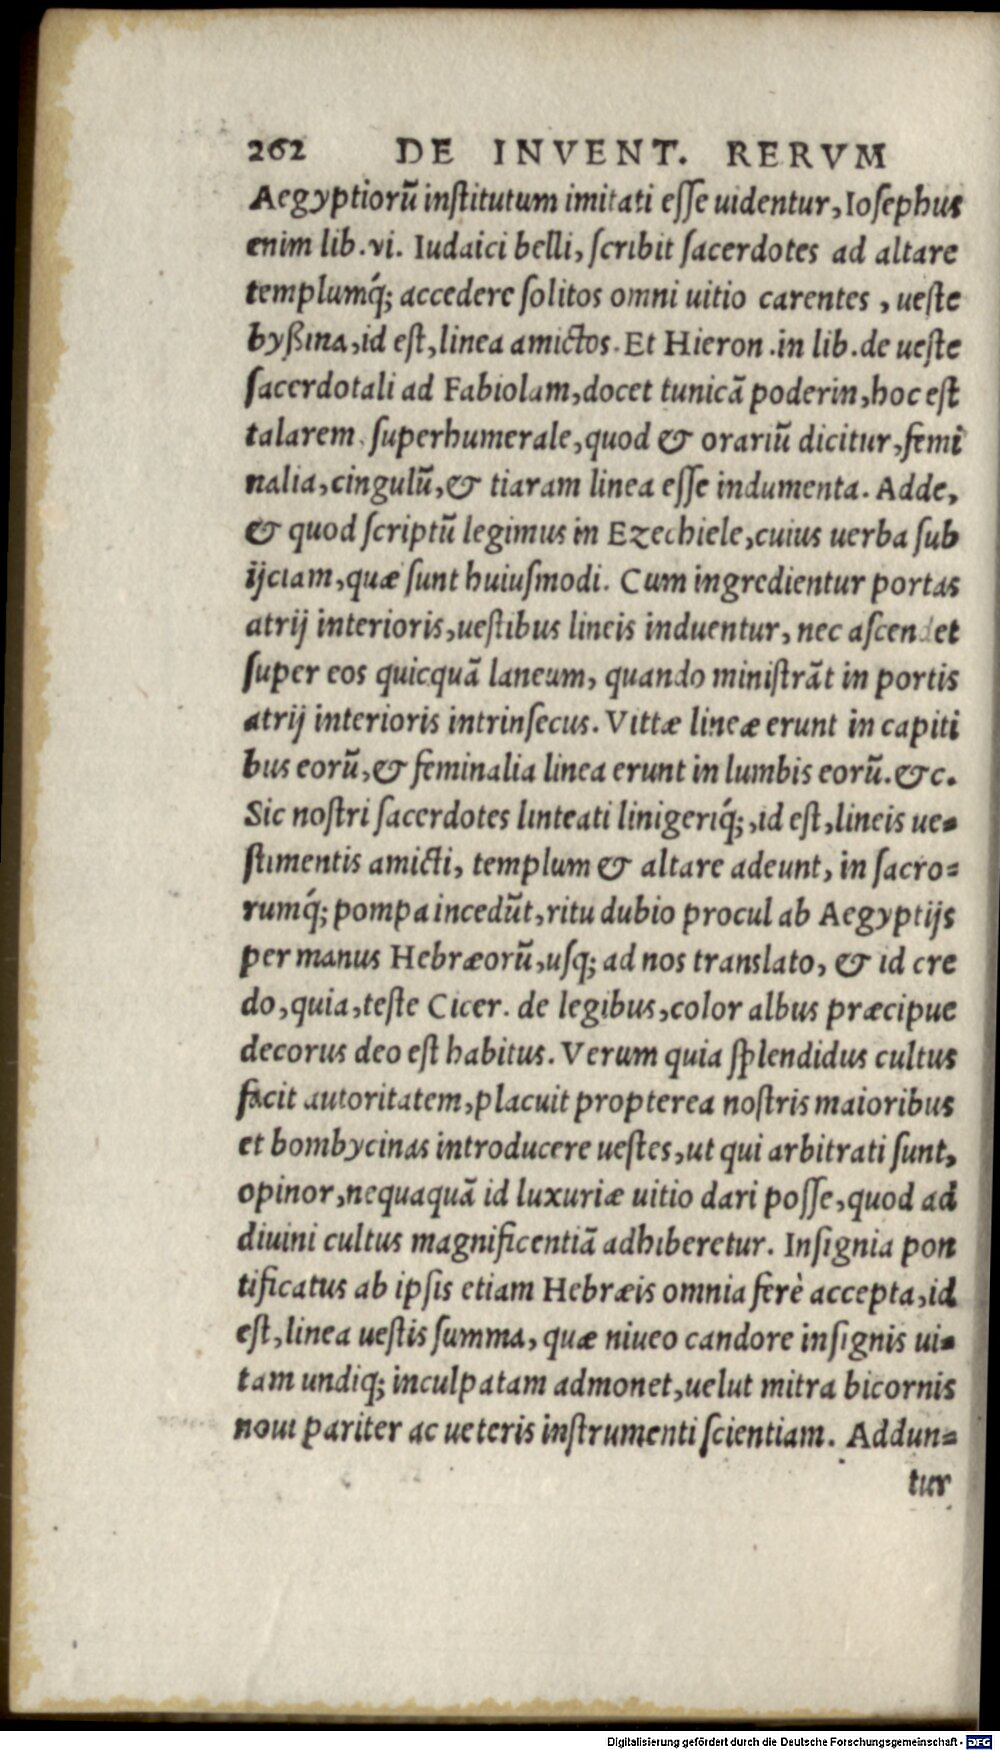 262 DE INVENT. RERVM
Aegyptiorũ institutum imitati esse uidentur, Iosephus
enim lib. vi. Iudaici belli, scribit sacerdotes ad altare
templumq́; accedere solitos omni uitio carentes, ueste
byßina, id est, linea amictos. Et Hieron. in lib. de ueste
sacerdotali ad Fabiolam, docet tunicã poderin, hoc est
talarem, superhumerale, quod & orariũ dicitur, femi
nalia, cingulũ, & tiaram linea esse indumenta. Adde,
& quod scriptũ legimus in Ezechiele, cuius uerba sub
ijciam, quæ sunt huiusmodi. Cum ingredientur portas
atrij interioris, uestibus lineis induentur, nec ascendet
super eos quicquã laneum, quando ministrãt in portis
atrij interioris intrinsecus. Vittæ lineæ erunt in capiti
bus eorũ, & feminalia linea erunt in lumbis eorũ. &c.
Sic nostri sacerdotes linteati linigeriq́;, id est, lineis ue-
stimentis amicti, templum & altare adeunt, in sacro-
rumq́; pompa incedũt, ritu dubio procul ab Aegyptijs
per manus Hebræorũ, usq; ad nos translato, & id cre
do, quia, teste Cicer. de legibus, color albus præcipue
decorus deo est habitus. Verum quia splendidus cultus
facit autoritatem, placuit propterea nostris maioribus
et bombycinas introducere uestes, ut qui arbitrati sunt,
opinor, nequaquã id luxuriæ uitio dari posse, quod ad
diuini cultus magnificentiã adhiberetur. Insignia pon
tificatus ab ipsis etiam Hebræis omnia ferè accepta, id
est, linea uestis summa, quæ niueo candore insignis ui-
tam undiq; inculpatam admonet, uelut mitra bicornis
noui pariter ac ueteris instrumenti scientiam. Addun-
tur
Digitalisierung gefördert durch die Deutsche Forschungsgemeinschaft - DFG